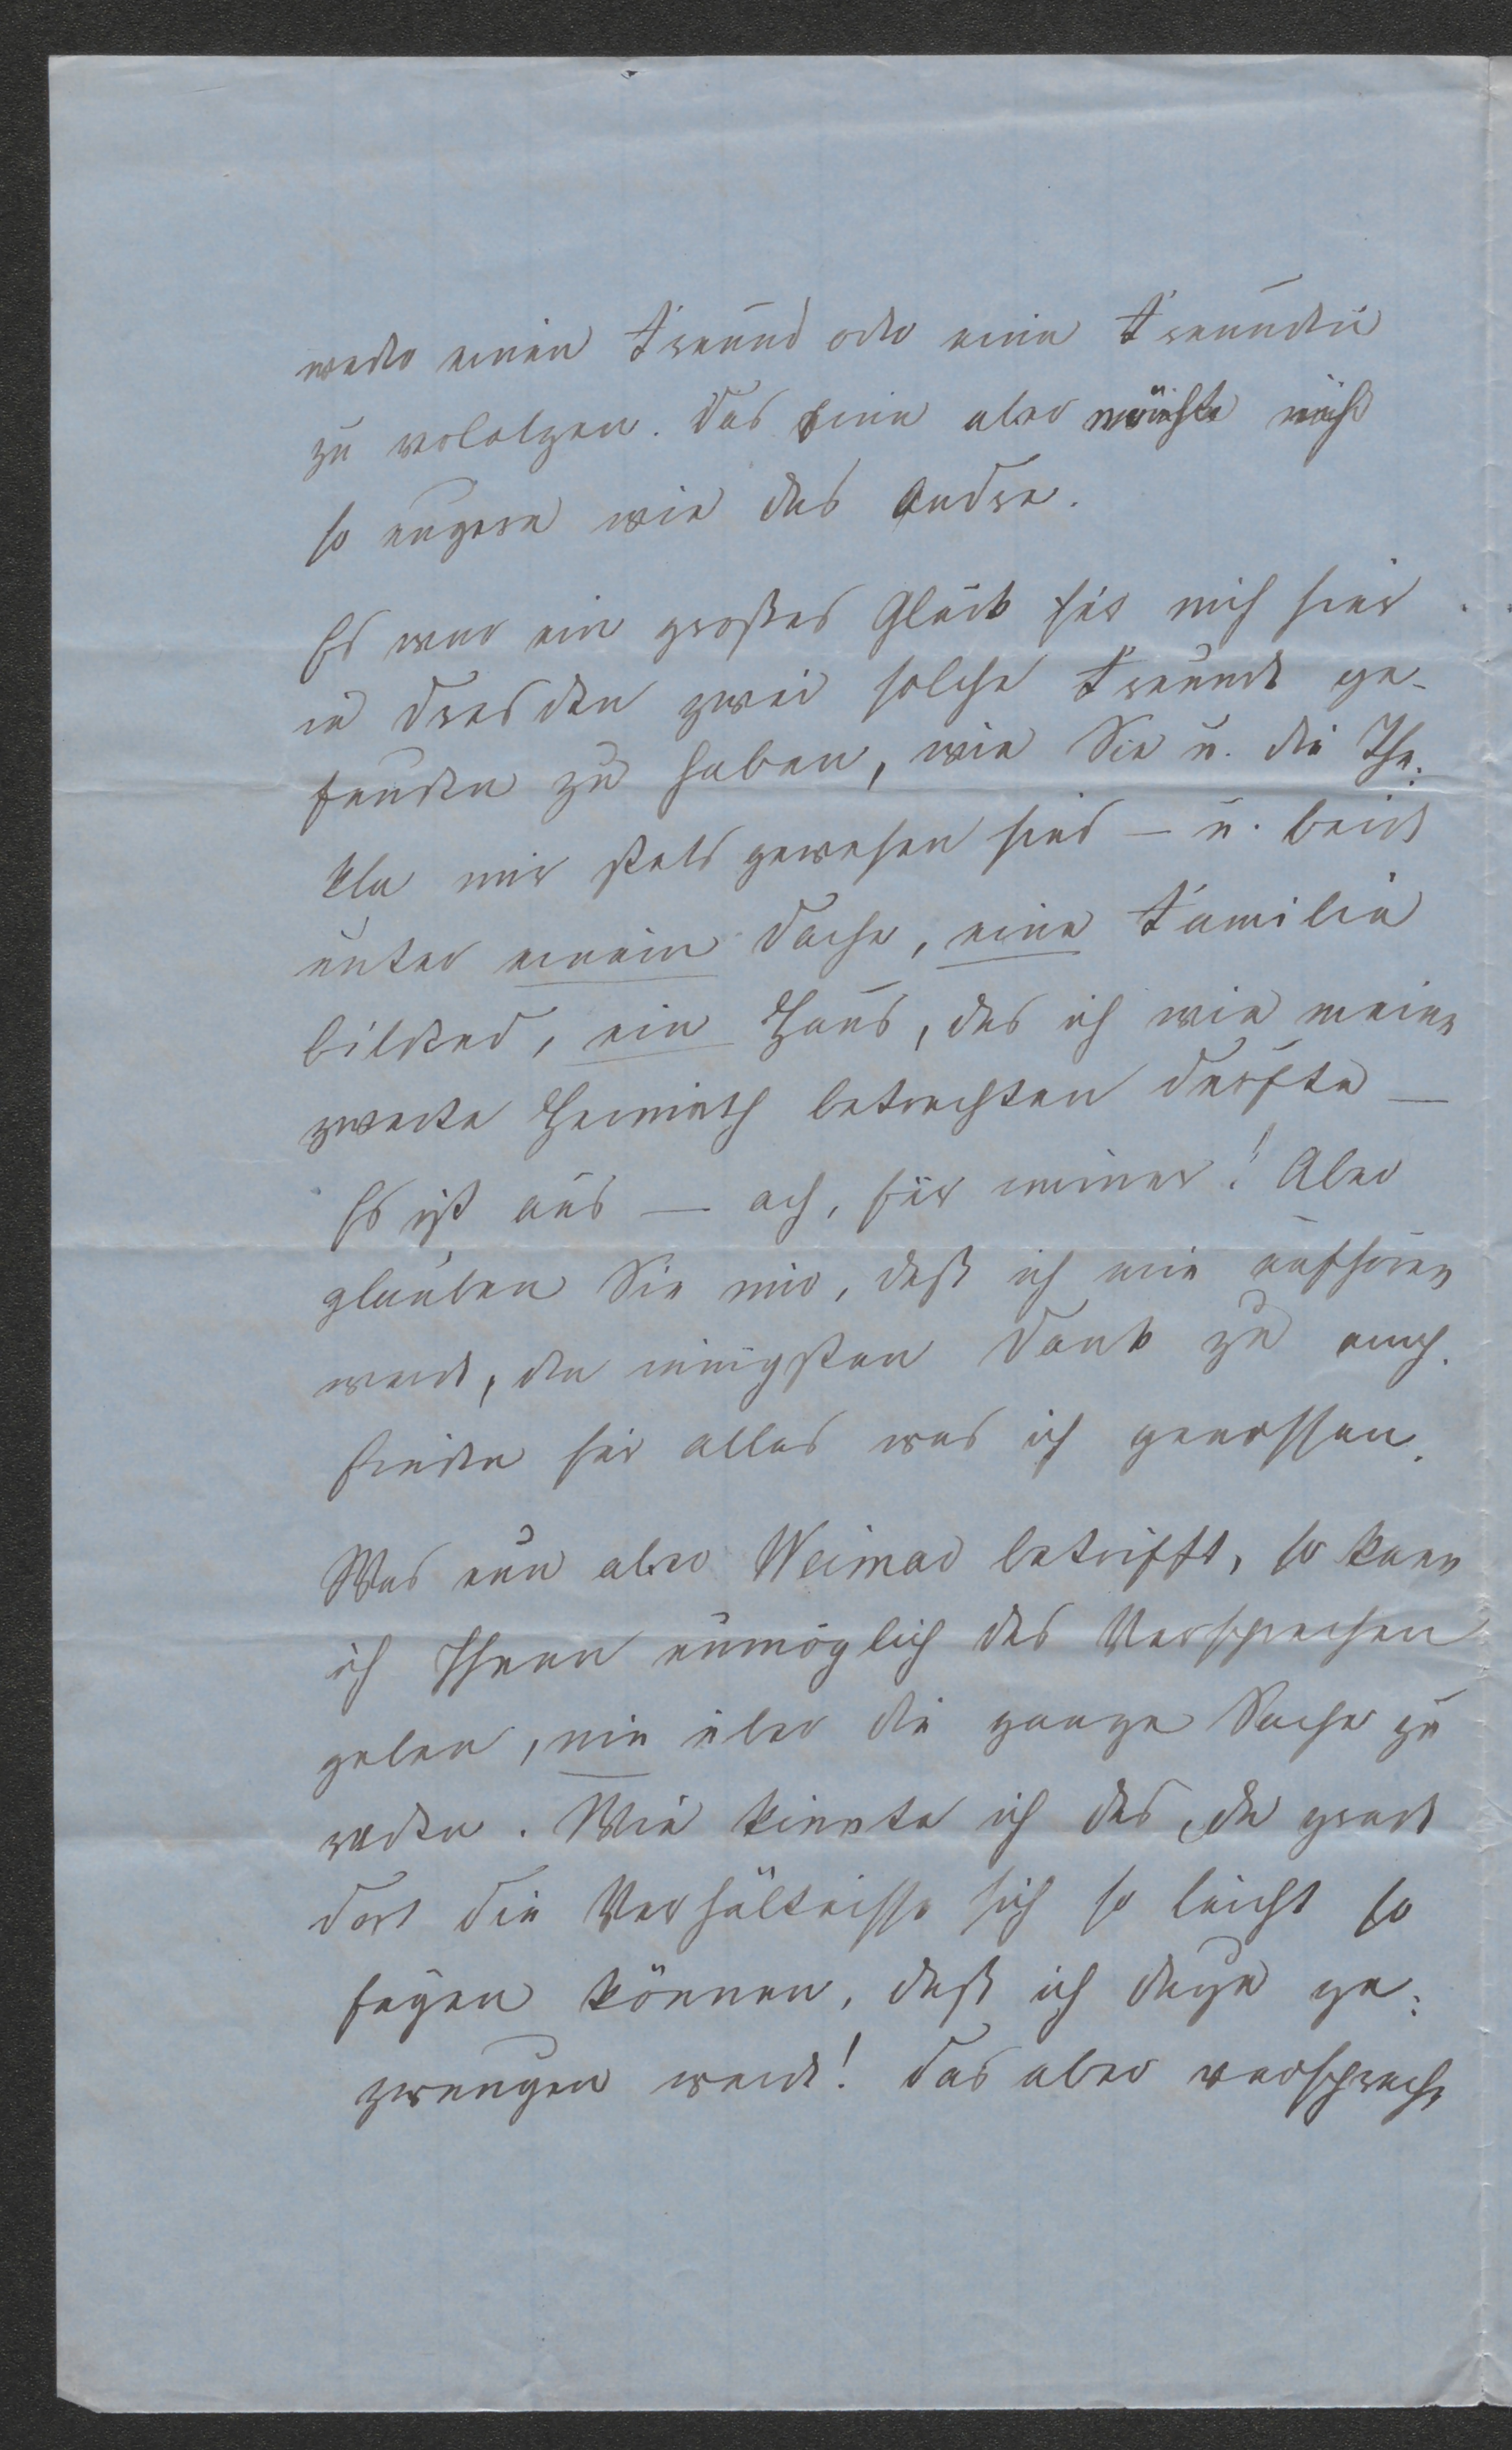 weder einen Freund oder eine Freundin
zu verfolgen. Das Eine aber möchte ich
so ungern wie das Andre.
Es war ein großes Glück für mich hier
in Dresden zwei solche Freunde ge-
funden zu haben, wie Sie u. die The-
kla mir stets gewesen sind – u. beide
unter einem Dache, eine Familie
bildend, ein Haus, das ich wie meine
zweite Heimath betrachten durfte –
Es ist aus – ach, für immer! Aber
glauben Sie mir, daß ich nie aufhören
werde, den innigsten Dank zu emp-
finden für alles was ich genossen.
Was nun aber Weimar betrifft, so kann
ich Ihnen unmöglich das Versprechen
geben, nie über die ganze Sache zu
reden. Wie könnte ich das, da grade
dort die Verhältnisse sich so leicht so
fügen können, daß ich dazu ge-
zwungen werde! Das aber verspreche